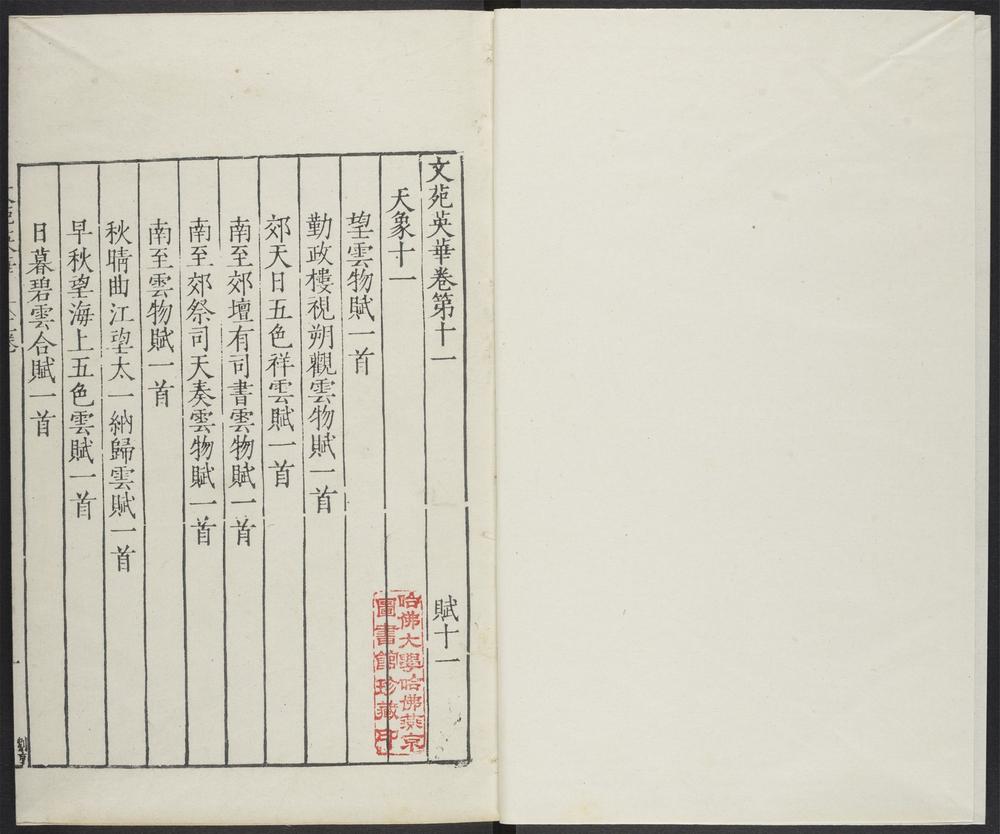 文苑英華卷第十一 賦十一
天象十一
望雲物賦一首
勤政樓視朔觀雲物賦一首
郊天日五色祥雲賦一首
南至郊壇有司書雲物賦一首
南至郊祭司天奏雲物賦一首
南至雲物賦一首
秋晴曲江望太一納歸雲賦一首
早秋望海上五色雲賦一首
日暮碧雲合賦一首
哈佛大學哈佛燕京
圖書館珍藏印